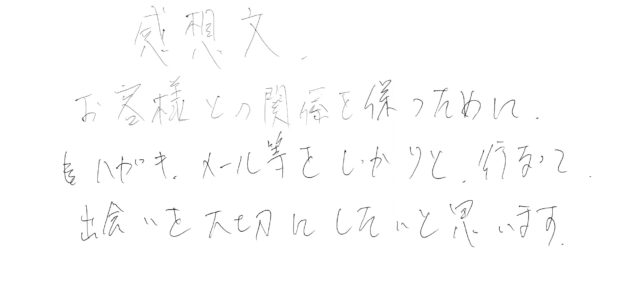 感想文.
お客様との関係を保つために.
ハガキ、メール等をしっかりと、行なって.
出会いを大切にしたいと思います.